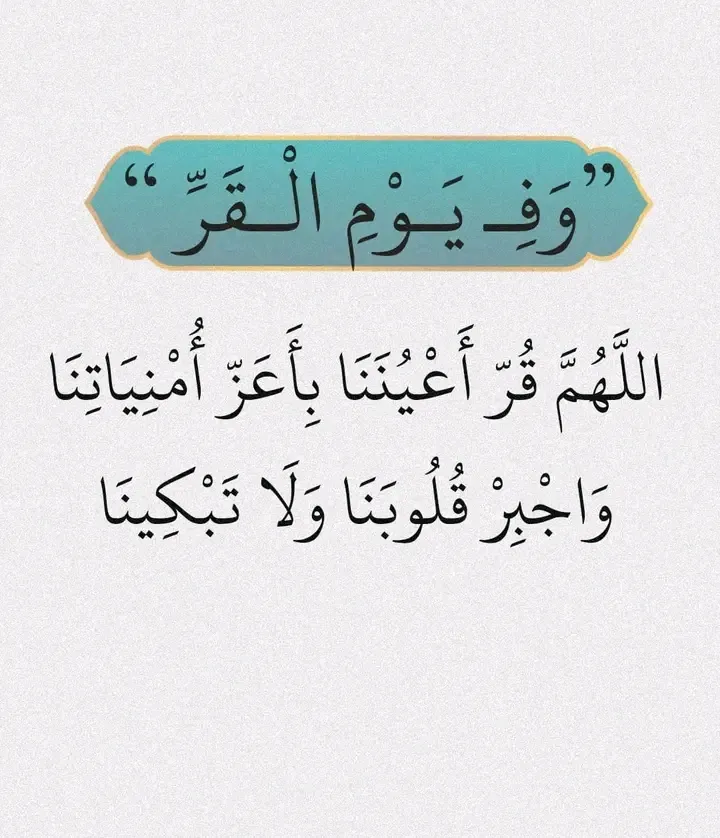 ”وَفِي يَوْمِ الْقَرِّ“
اللَّهُمَّ قُرّ أَعْيُنَنَا بِأَعَزّ أُمْنِيَاتِنَا
وَاجْبِرْ قُلُوبَنَا وَلَا تَبْكِينَا